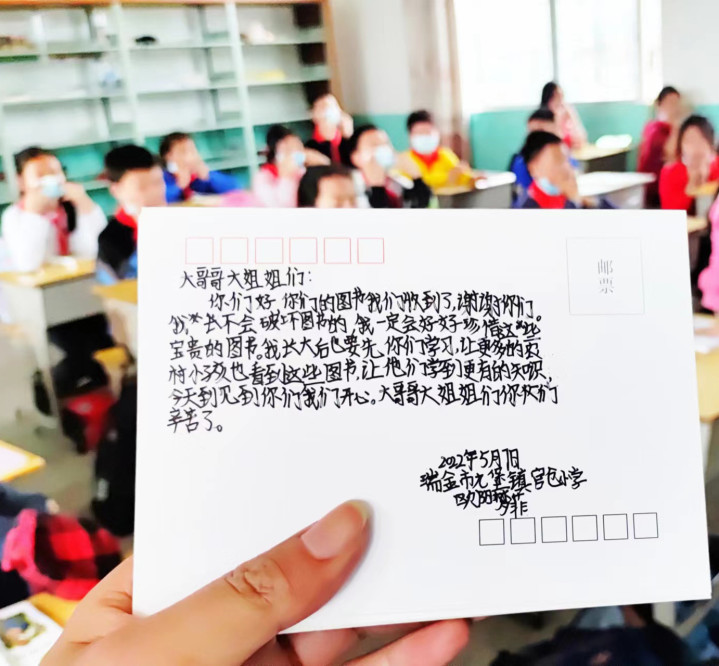 邮
票
大哥哥大姐姐们:
你们好,你们的图书我们收到了,谢谢你们。
我 不会破坏图书的,我一定会好好珍惜这些
宝贵的图书。我长大后也要先你们学习,让更多的
村小孩也看到这些图书,让他们学到更有的知识,
今天到见到你们我们开心。大哥哥大姐姐们你们
辛苦了。
2022年5月
瑞金市九堡镇官仓小学
欧阳梦菲